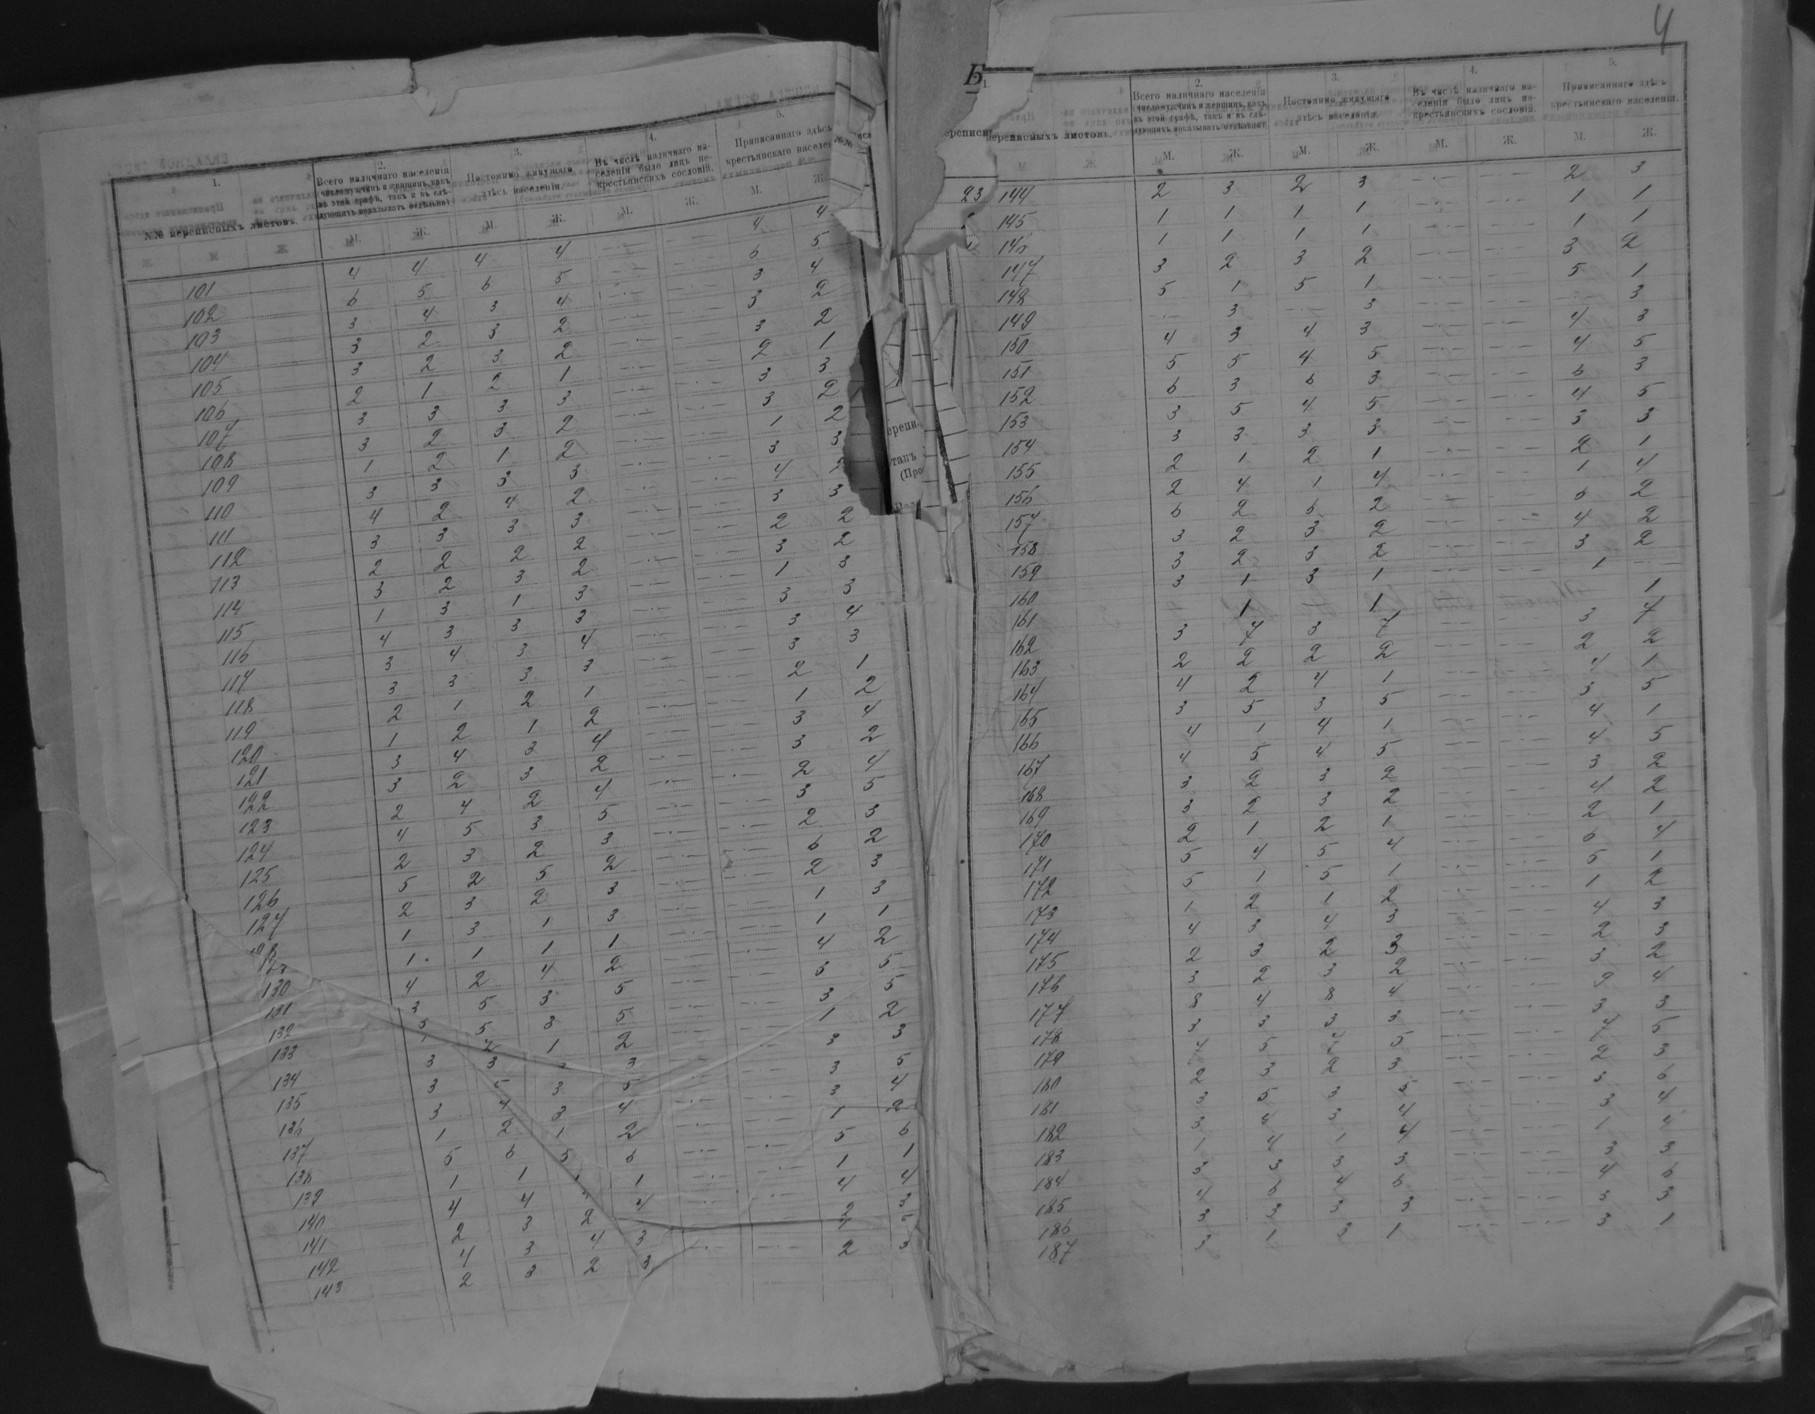 1.
2.
Всего наличнаго населенія
3.
Постоянно живущаго
здѣсь населенія.
4.
Въ числѣ наличнаго на-
селенія было лицъ не-
крестьянскихъ сословій.
5.
Приписаннаго здѣсь
крестьянскаго населен
№№ переписныхъ листовъ.
М. Ж. М. Ж. М. Ж. М. Ж.
101 4 4 4 4 4 4
102 6 5 6 5 6 5
103 3 4 3 4 3 4
104 3 2 3 2 3 2
105 3 2 3 2 3 2
106 2 1 2 1 2 1
107 3 3 3 3 3 3
108 3 2 3 2 3 2
109 1 2 1 2 1 2
110 3 3 3 3 3 3
111 4 2 4 2 4
112 3 3 3 3 3 3
113 2 2 2 2 2 2
114 3 2 3 2 3 2
115 1 3 1 3 1 3
116 4 3 3 3 3 3
117 3 4 3 4 3 4
118 3 3 3 3 3 3
119 2 1 2 1 2 1
120 1 2 1 2 1 2
121 3 4 3 4 3 4
122 3 2 3 2 3 2
123 2 4 2 4 2 4
124 4 5 3 5 3 5
125 2 3 2 3 2 3
126 5 2 5 2 6 2
127 2 3 2 3 2 3
1 3 1 3 1 3
1 1 1 1 1 1
130 4 2 4 2 4 2
131 3 5 3 5 3 5
132 3 5 3 5 3 5
133 1 2 1 2 1 2
134 3 3 3 3 3
135 3 5 3 5 3 5
136 3 4 3 4 3 4
137 1 2 1 2 1 2
138 5 6 5 6 5 6
139 1 1 1 1 1 1
140 4 4 4 4 4
141 2 3 2 3
142 4 3 4 3
143 2 3 2 3 2 3
4
Б
2.
Всего наличнаго населенія
(число мужчинъ и женщинъ, какъ
въ этой графѣ, такъ и въ слѣ-
3.
Постоянно живущаго
здѣсь населенія.
4.
Въ числѣ наличнаго на-
селенія было лицъ не-
крестьянскихъ сословій.
5.
Приписаннаго здѣсь
крестьянскаго населенія.
переписныхъ листовъ.
М. Ж. М. Ж. М. Ж.
23 144 2 3 2 3 2 3
145 1 1 1 1 1 1
146 1 1 1 1 1 1
147 3 2 3 2 3 2
148 5 1 5 1 5 1
149 3 3 3
150 4 3 4 3 4 3
151 5 5 4 5 4 5
152 6 3 6 3 6 3
153 3 5 4 5 4 5
154 3 3 3 3 3 3
155 2 1 2 1 2 1
156 2 4 1 4 1 4
157 6 2 6 2 6 2
158 3 2 3 2 4 2
159 3 2 3 2 3 2
160 3 1 3 1 1
161 1 1 1
162 3 7 3 7 3 7
163 2 2 2 2 2 2
164 4 2 4 1 4 1
165 3 5 3 5 3 5
166 4 1 4 1 4 1
167 4 5 4 5 4 5
168 3 2 3 2 3 2
169 3 2 3 2 4 2
170 2 1 2 1 2 1
171 5 4 5 4 6 4
172 5 1 5 1 5 1
173 1 2 1 2 1 2
174 4 3 4 3 4 3
175 2 3 2 3 2 3
176 3 2 3 2 3 2
177 8 4 8 4 4
178 3 3 3 3 3 3
179 4 5 5 5
180 2 3 2 3 2 3
181 3 5 3 3 6
182 3 4 3 4 3 4
183 1 4 1 4 1 4
184 3 3 3 3 3 3
185 4 4 6 4 6
186 3 3 3 3 3 3
187 3 1 3 1 3 1